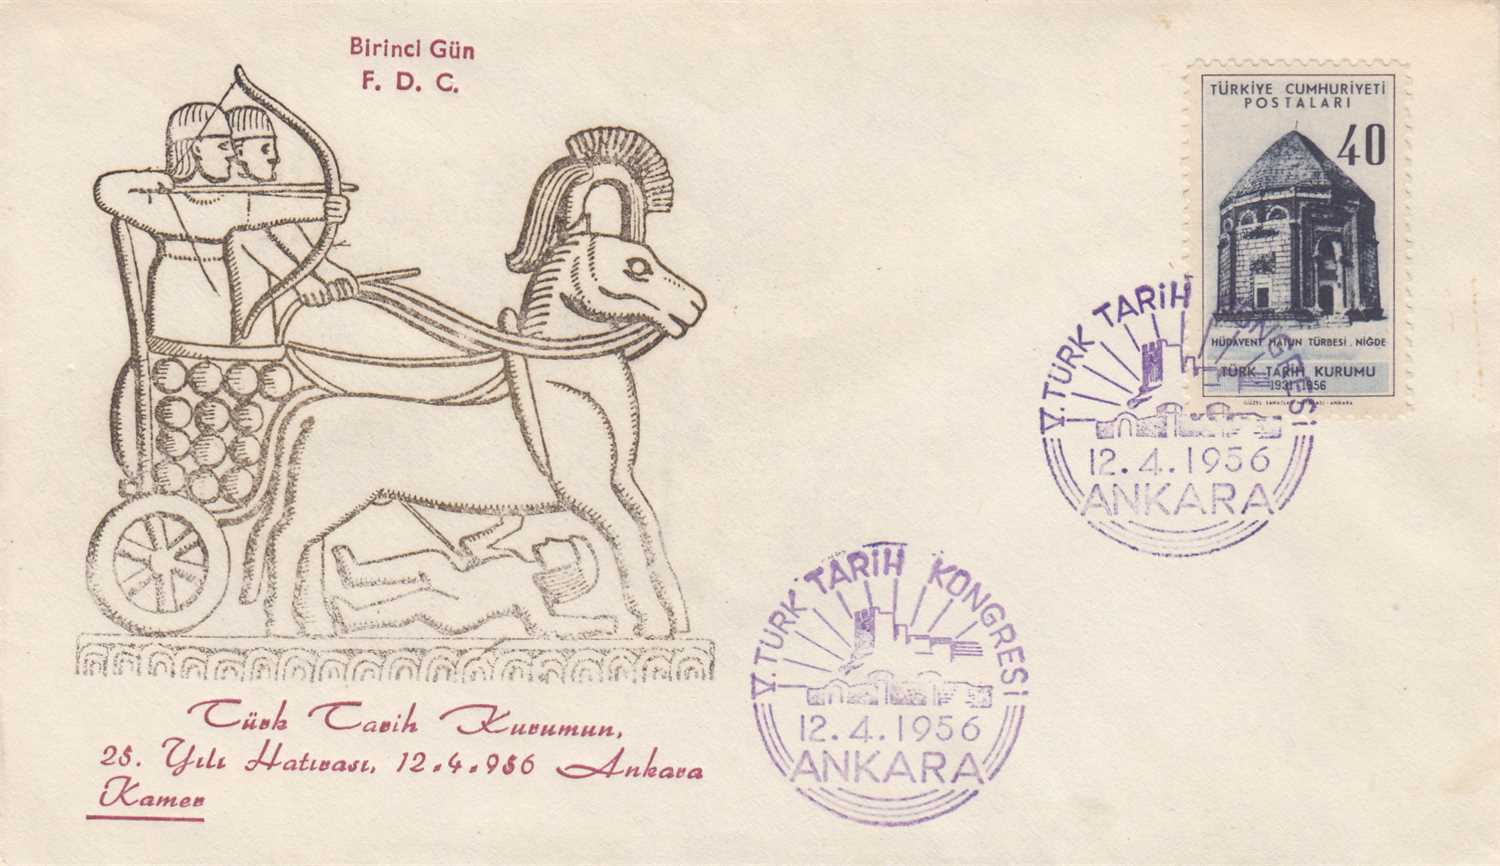 Birinci Gün
F. D. C.
TÜRKİYE CUMHURİYETİ
POSTALARI
40
HÜDAVENT HATUN TÜRBESİ . NİĞDE
TÜRK TARİH KURUMU
1931-1956
V. TÜRK TARİH KONGRESİ
12.4.1956
ANKARA
V. TÜRK TARİH KONGRESİ
12.4.1956
ANKARA
Türk Tarih Kurumun,
25. Yılı Hatırası, 12.4.956 Ankara
Kamer